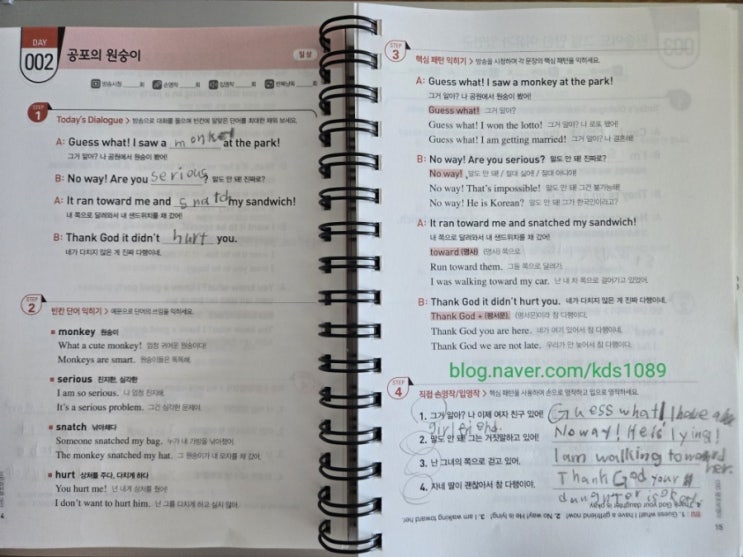 DAY
002
공포의 원숭이
일상
방송시청 ___회
손영작 ___회
입영작 ___회
반복낭독 ___회
STEP
1
Today's Dialogue > 방송으로 대화를 들으며 빈칸에 알맞은 단어를 최대한 채워 보세요.
A: Guess what! I saw a monkey at the park!
그거 알아? 나 공원에서 원숭이 봤어!
B: No way! Are you serious? 말도 안 돼! 진짜로?
A: It ran toward me and snatd my sandwich!
내 쪽으로 달려와서 내 샌드위치를 채 갔어!
B: Thank God it didn't hurt you.
네가 다치지 않은 게 진짜 다행이네.
STEP
2
빈칸 단어 익히기 > 예문으로 단어의 쓰임을 익히세요.
monkey 원숭이
What a cute monkey! 엄청 귀여운 원숭이다!
Monkeys are smart. 원숭이들은 똑똑해.
serious 진지한, 심각한
I am so serious. 나 엄청 진지해.
It's a serious problem. 그건 심각한 문제야.
snatch 낚아채다
Someone snatched my bag. 누가 내 가방을 낚아챘어.
The monkey snatched my hat. 그 원숭이가 내 모자를 채 갔어.
hurt 상처를 주다, 다치게 하다
You hurt me! 넌 내게 상처를 줬어!
I don't want to hurt him. 난 그를 다치게 하고 싶지 않아.
STEP
3
핵심 패턴 익히기 > 방송을 시청하며 각 문장의 핵심 패턴을 익히세요.
A: Guess what! I saw a monkey at the park!
그거 알아? 나 공원에서 원숭이 봤어!
Guess what! 그거 알아?
Guess what! I won the lotto! 그거 알아? 나 로또 됐어!
Guess what! I am getting married! 그거 알아? 나 결혼해!
B: No way! Are you serious? 말도 안 돼! 진짜로?
No way! 말도 안 돼! / 절대 싫어! / 절대 아니야!
No way! That's impossible! 말도 안 돼! 그건 불가능해!
No way! He is Korean? 말도 안 돼! 그가 한국인이라고?
A: It ran toward me and snatched my sandwich!
내 쪽으로 달려와서 내 샌드위치를 채 갔어!
toward (명사) (명사) 쪽으로
Run toward them. 그들 쪽으로 달려가.
I was walking toward my car. 난 내 차 쪽으로 걸어가고 있었어.
B: Thank God it didn't hurt you. 네가 다치지 않은 게 진짜 다행이네.
Thank God + (평서문). (평서문)이라 참 다행이다.
Thank God you are here. 네가 여기 있어서 참 다행이다.
Thank God we are not late. 우리가 안 늦어서 참 다행이다.
blog.naver.com/kds1089
STEP
4
직접 손영작/입영작 > 핵심 패턴을 사용하여 손으로 영작하고 입으로 영작하세요.
1. 그거 알아? 나 이제 여자 친구 있어! Guess what! I have a
girlfriend.
2. 말도 안 돼! 그는 거짓말하고 있어! No way! He is lying!
3. 난 그녀의 쪽으로 걷고 있어. I am walking toward
her.
4. 자네 딸이 괜찮아서 참 다행이야. Thank God your
1. Guess what! I have a girlfriend now! 2. No way! He is lying! 3. I am walking toward her.
4. Thank God your daughter is okay.
15